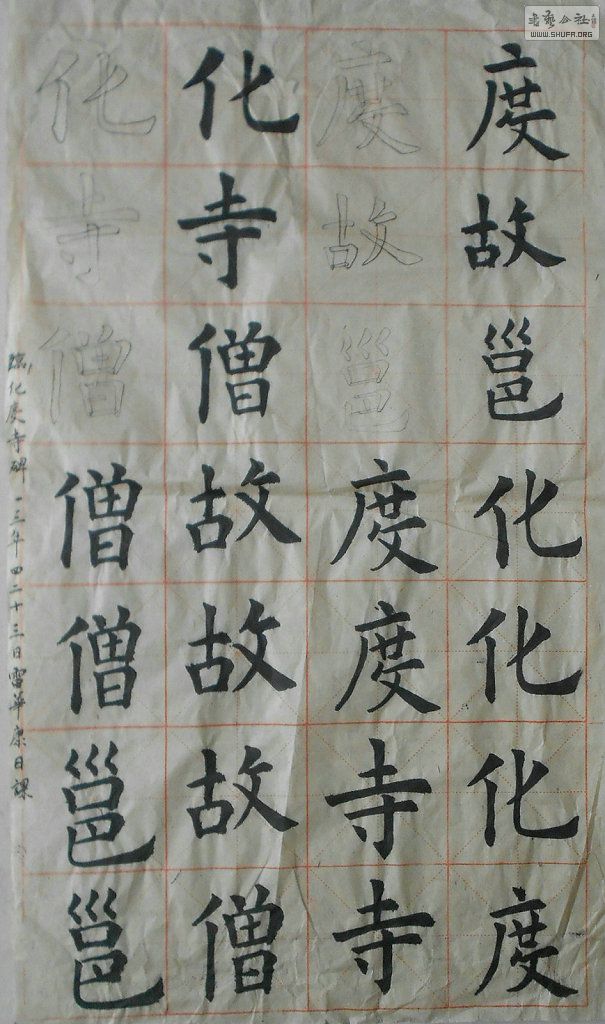 度故邕化化化度
度故邕度度寺寺
化寺僧故故故僧
化寺僧僧僧邕邕
临化度寺碑一三年四二十三日雷華康日課
書藝公社
WWW.SHUFA.ORG